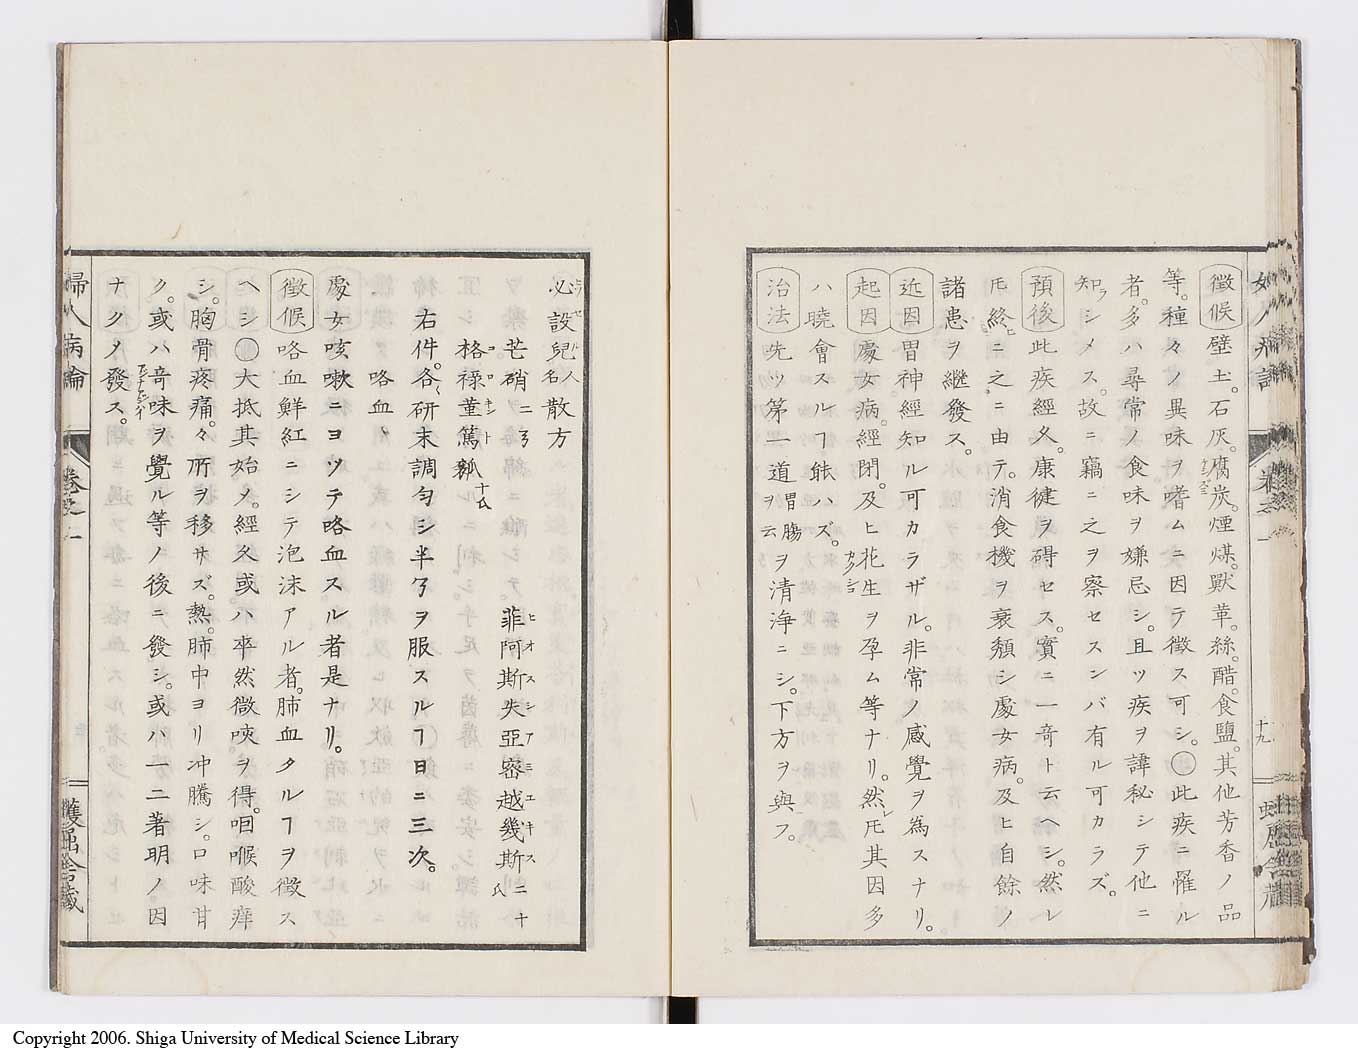 徴候 壁土。石灰。腐炭。煙煤。獸革。絲。醋。食鹽。其他芳香ノ品
等。種々ノ異味ヲ嗜ムニ因テ徴ス可シ。〇此疾ニ罹ル
者。多ハ尋常ノ食味ヲ嫌忌シ。且ツ疾ヲ諱秘シテ他ニ
知ラシメス。故ニ竊ニ之ヲ察セスンバ有ル可カラズ。
預後 此疾經久。康健ヲ碍セス。實ニ一竒ト云ヘシ。然レ
𪜈終ニ之ニ由テ。消食機ヲ衰頽シ處女病。及ヒ自餘ノ
諸患ヲ繼發ス。
近因 胃神經知ル可カラザル。非常ノ感覺ヲ為スナリ。
起因 處女病。經閉。及ヒ花生ヲ孕ム等ナリ。然𪜈其因多
ハ曉會スルヿ能ハズ。
治法 先ツ第一道胃腸ヲ云ヲ清浄ニシ。下方ヲ與フ。
十九
必設兒人名散方
芒硝二
菲阿斯失亞密越幾斯二十氏
格碌菫篤瓤十氏
右件。各〱研末調匀シ半ヲ服スルヿ日ニ三次。
處女咳嗽ニヨツテ咯血スル者是ナリ。
徴候 咯血鮮紅ニシテ泡沫アル者。肺血タルヿヲ徴ス
ヘシ〇大抵其始メ。經久或ハ卒然微咳ヲ得。咽喉酸痒
シ。胸骨疼痛。々所ヲ移サズ。熱。肺中ヨリ冲騰シ。口味甘
ク。或ハ竒味ヲ覺ル等ノ後ニ發シ。或ハ一二著明ノ。因
ナクノ發ス。
婦人病論 卷之一
蠖屈舎藏
Copyright 2006. Shiga University of Medical Science Library